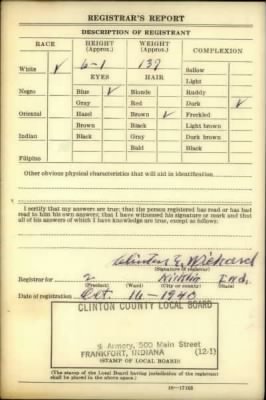 REGISTRAR'S REPORT
DESCRIPTION OF REGISTRANT
RACE HEIGHT (Approx.) WEIGHT (Approx.) COMPLEXION
White ✓ 6-1 137 Sallow
EYES HAIR Light
Negro Blue ✓ Blonde Ruddy
Gray Red Dark ✓
Oriental Hazel Brown ✓ Freckled
Brown Black Light brown
Indian Black Gray Dark brown
Bald Black
Filipino
Other obvious physical characteristics that will aid in identification
I certify that my answers are true; that the person registered has read or has had
read to him his own answers; that I have witnessed his signature or mark and that
all of his answers of which I have knowledge are true, except as follows:
Clinton E. Wickard
(Signature of registrar)
Registrar for 2 Kirklin Ind.
(Precinct) (Ward) (City or county) (State)
Date of registration Oct. 16-1940
CLINTON COUNTY LOCAL BOARD
Armory, 500 Main Street
FRANKFORT, INDIANA (12-1)
(STAMP OF LOCAL BOARD)
(The stamp of the Local Board having jurisdiction of the registrant
shall be placed in the above space.)
16-17105